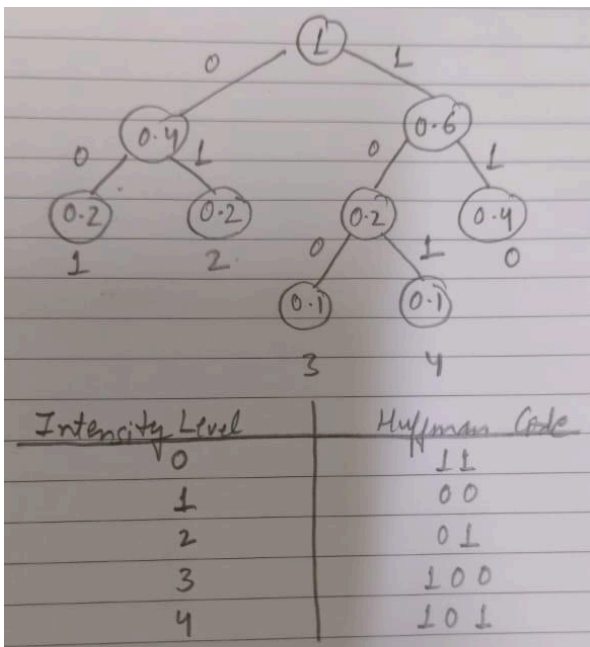 1
0 1
0.4 0.6
0 1 0 1
0.2 0.2 0.2 0.4
1 2 0 1 0
0.1 0.1
3 4
Intensity Level Huffman Code
0 11
1 00
2 01
3 100
4 101